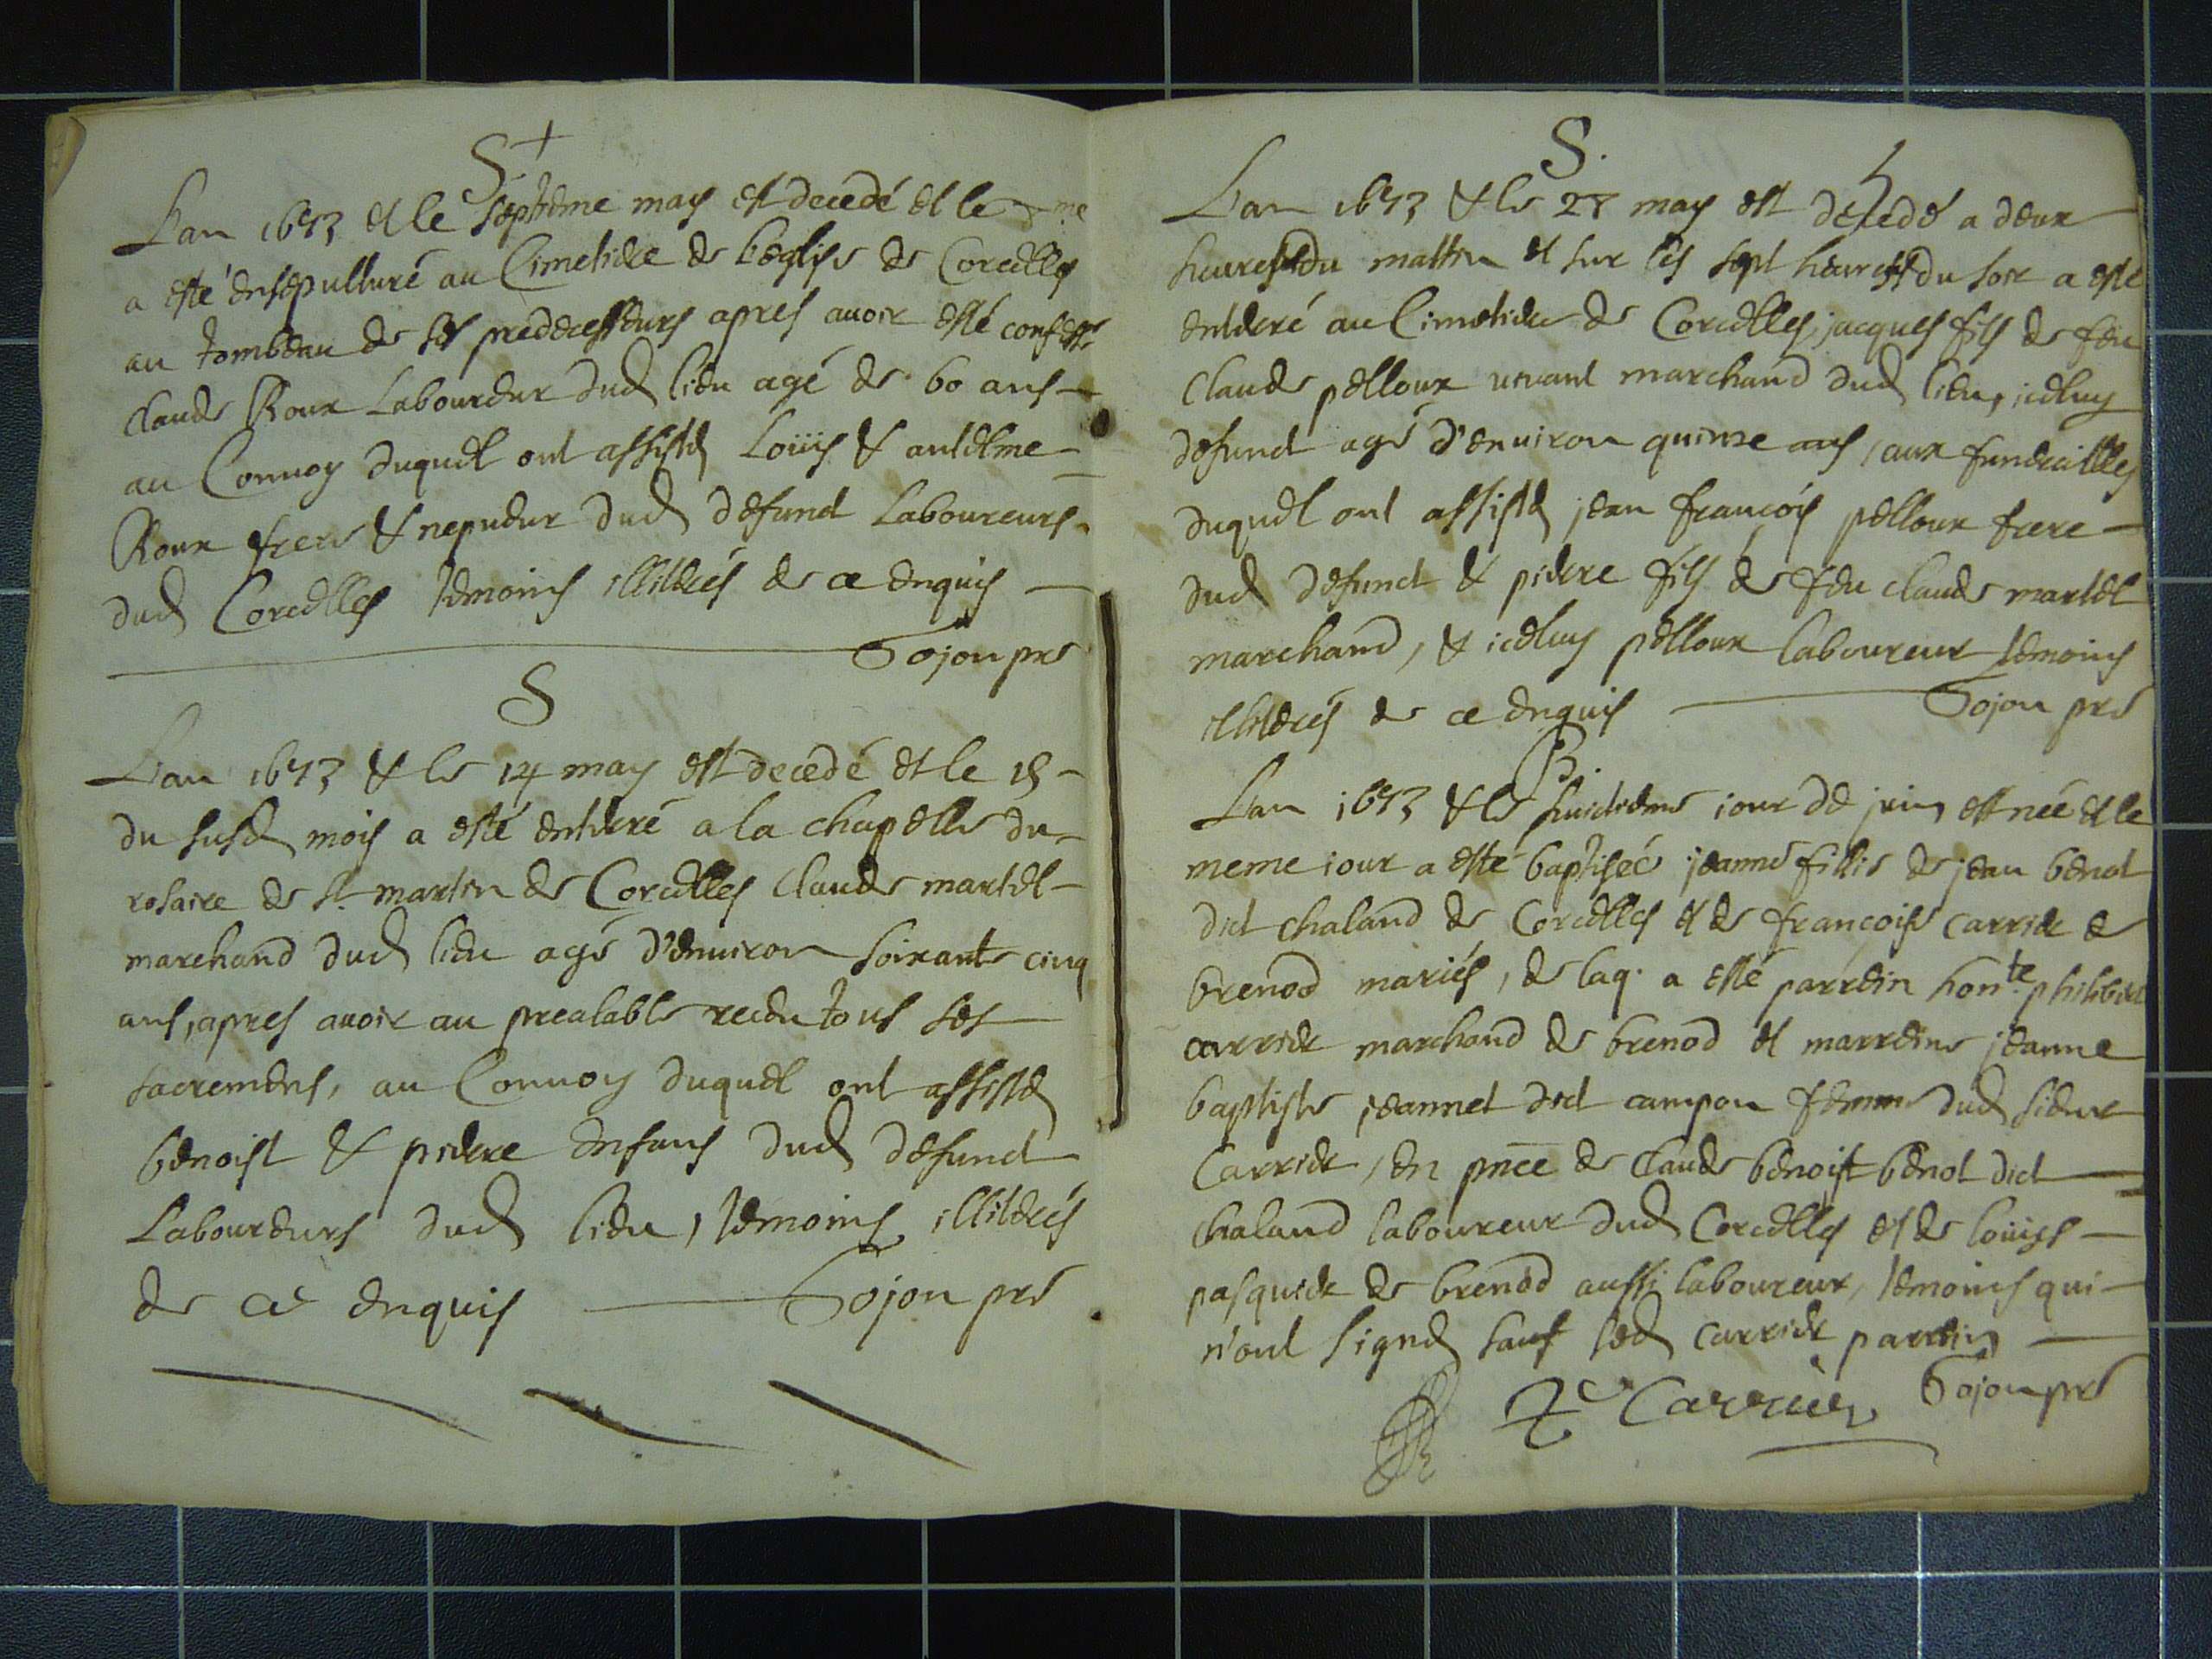 S +
L'an 1693 et le septieme may est decedé et le 8me
a esté ensepulturé au Cimetiere de l'eglise de Corcelles
au tombeau de ses predecesseurs apres auoir esté confessé
claude Roux Laboureur dud lieu agé de 60 ans
au Conuoy duquel ont assistés Loüis & antelme
Roux frere & nepueur dud defunct Laboureurs
dud Corcelles temoins illiterés de ce enquis
Gojon pre
S
L'an 1693 & le 14 may est decedé et le 15
du susd mois a esté enterré a la chapelle du
rosaire de st martin de Corcelles Claude martel
marchand dud lieu agé d'enuiron soixante cinq
ans, apres auoir au prealable receu tous ses
sacremens, au Conuoy duquel ont assistés
benoist & pierre enfans dud defunct
Laboureurs dud lieu, temoins illiterés
de ce enquis Gojon pre
S. 5
L'an 1693 & le 28 may est decedé a deux
heures du mattin et sur les sept heures du soir a esté
enterré au Cimetiere de Corcelles, jacques fils de feu
Claude pelloux viuant marchand dud lieu, iceluy
defunct agé d'enuiron quinze ans, aux funerailles
duquel ont assistés jean françois pelloux frere
dud defunct & pierre fils de feu claude martel
marchand, & iceluy pelloux laboureur temoins
illiterés de ce enquis Gojon pre
B.
L'an 1693 & le huictieme iour de juin est née et le
meme iour a esté baptisée jeanne fillie de jean benot
dict chaland de Corcelles et de françoise carrier de
brenod mariés, de laq. a esté parrein honte philibert
carrier marchand de brenod et marreine jeanne
baptiste jeannet dict campon femme dud sieur
Carrier, en pnce de claude benoist benot dict
chaland laboureur dud Corcelles et de loüiss
pasquier de brenod aussi laboureur, temoins qui
n'ont signés sauf led carrier parrein
Carrier Gojon pre